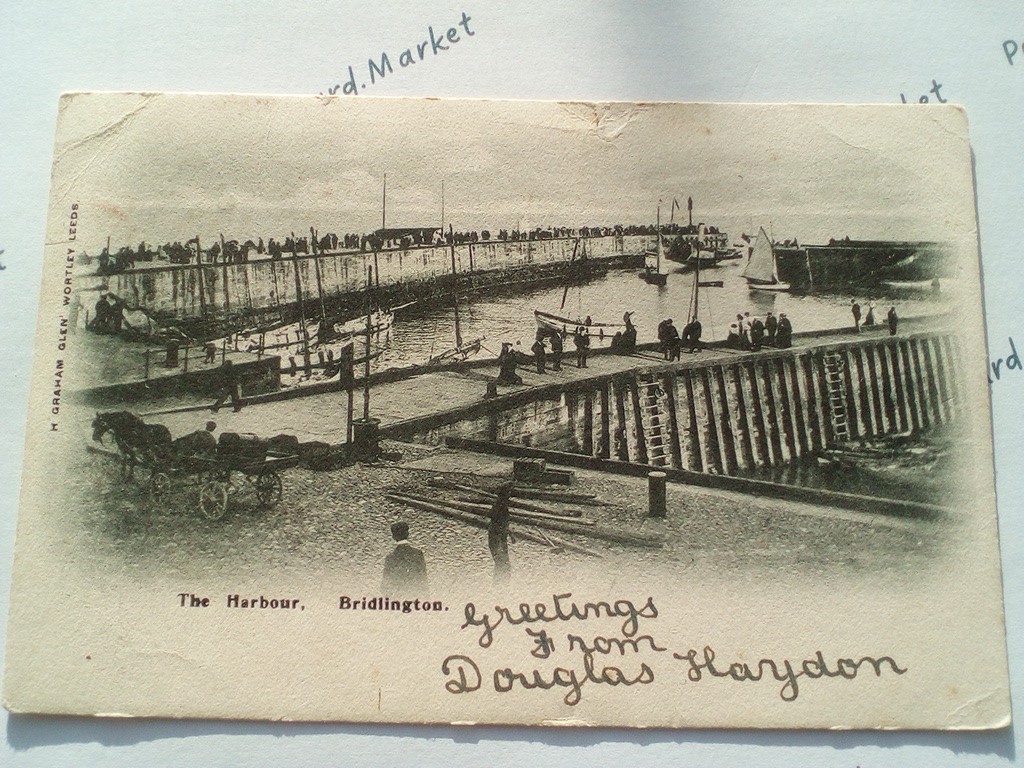 rd.Market
et
H GRAHAM GLEN' WORTLEY LEEDS.
The Harbour, Bridlington.
Greetings
From
Douglas Haydon
rd